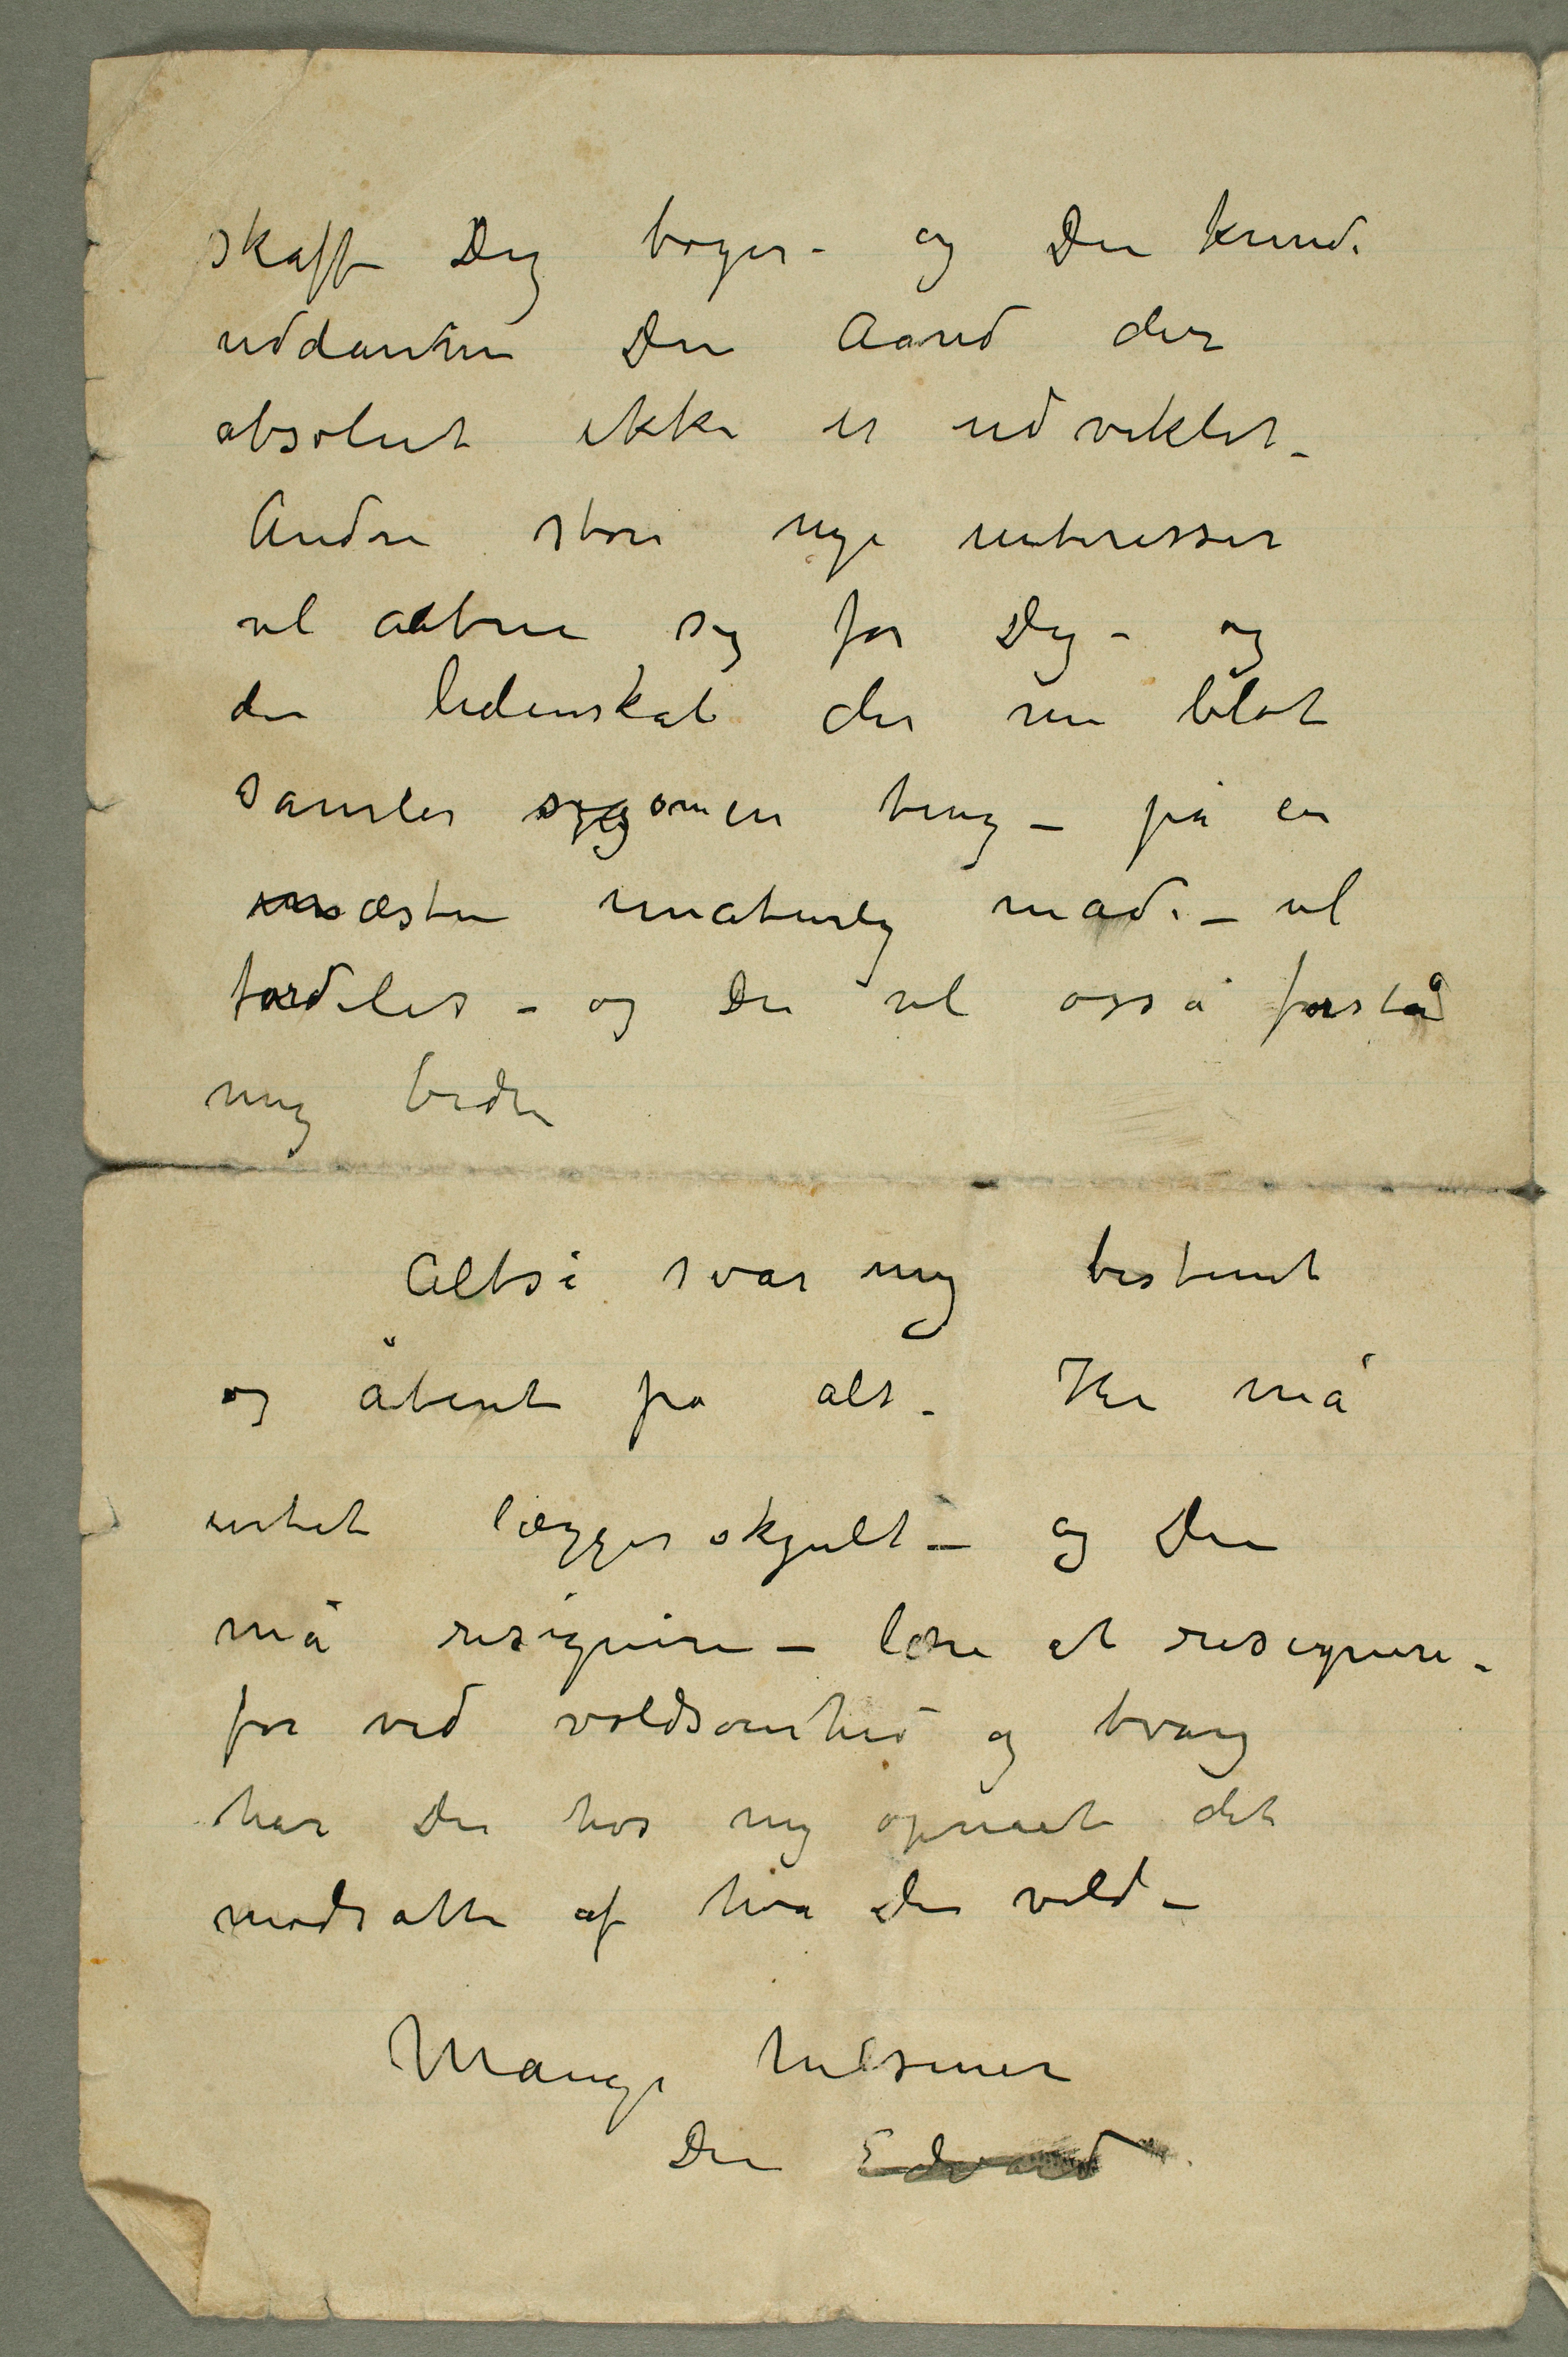 skaffe Dig bøger – og Du kunde
uddanne Din Aand der
absolut ikke er udviklet –
Andre store nye interesser
vil aabne sig for Dig – og
den lidenskab der nu blot
samler sig om en ting – på en
næsten unaturlig måde – vil
fordeles – og Du vil også forstå
mig bedre
Altså svar mig bestemt
og åbent på alt – Her må
intet lægges skjult – og Du
må resignere – lære at resignere –
for ved voldsomhed og tvang
har Du hos mig opnaaet det
modsatte af hva du vilde –
Mange hilsener
Din Edvard